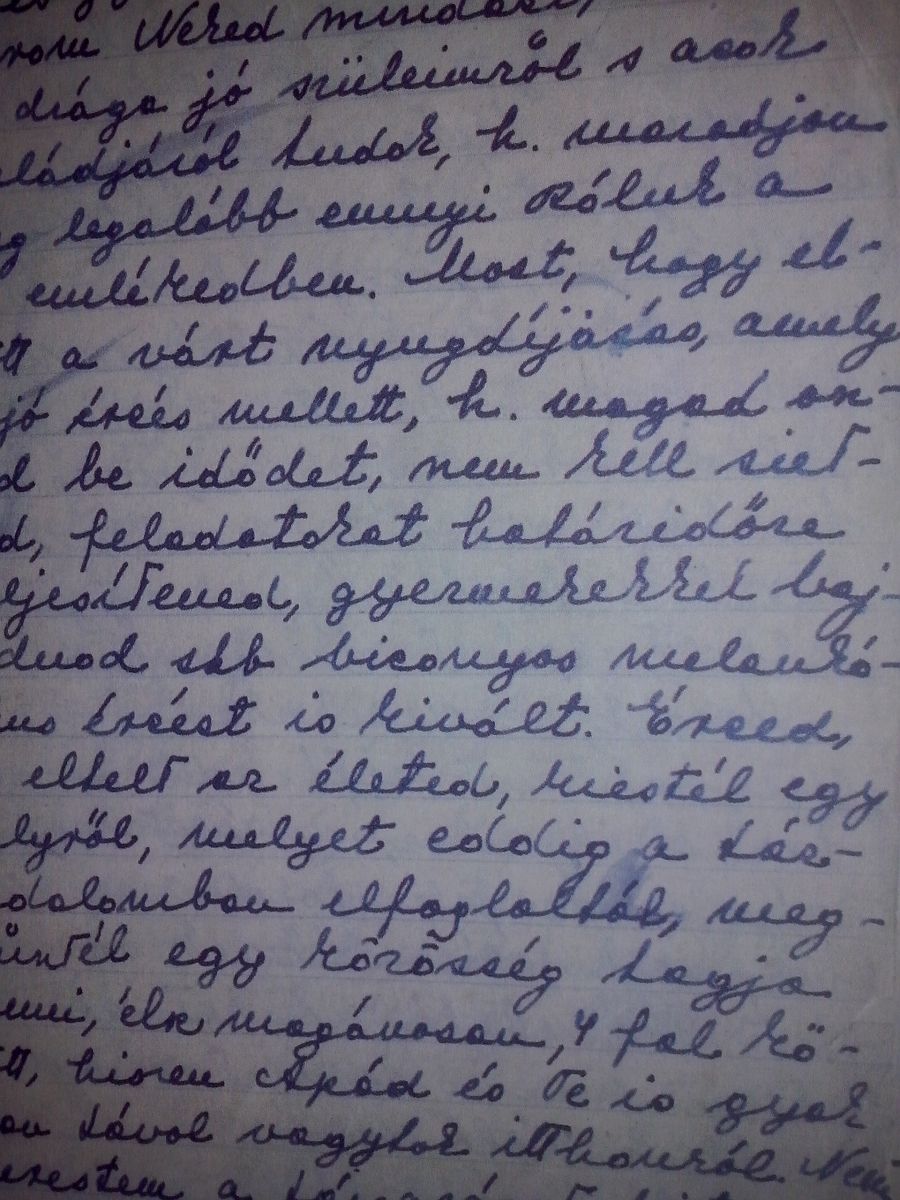 Neked mindazt,
drága jó szüleimről s azok
ládjáról tudok, h. maradjon
g legalább ennyi Róluk a
emlékedben. Most, hogy el-
tt a várt nyugdíjazás, amely
jó érzés mellett, h. magad oszt-
d be idődet, nem kell siet-
d, feladatokat határidőre
ljesítened, gyermekekkel baj-
dnod stb bizonyos melankó-
us érzést is kivált. Érzed,
eltelt az életed, kiestél egy
lyről, melyet eddig a tár-
dalomban elfoglaltál, meg-
űntél egy közösség tagja
nni, élsz magánosan, 4 fal kö-
tt, hiszen Apád és Te is gyak
on távol vagytok itthonról. Nem
a